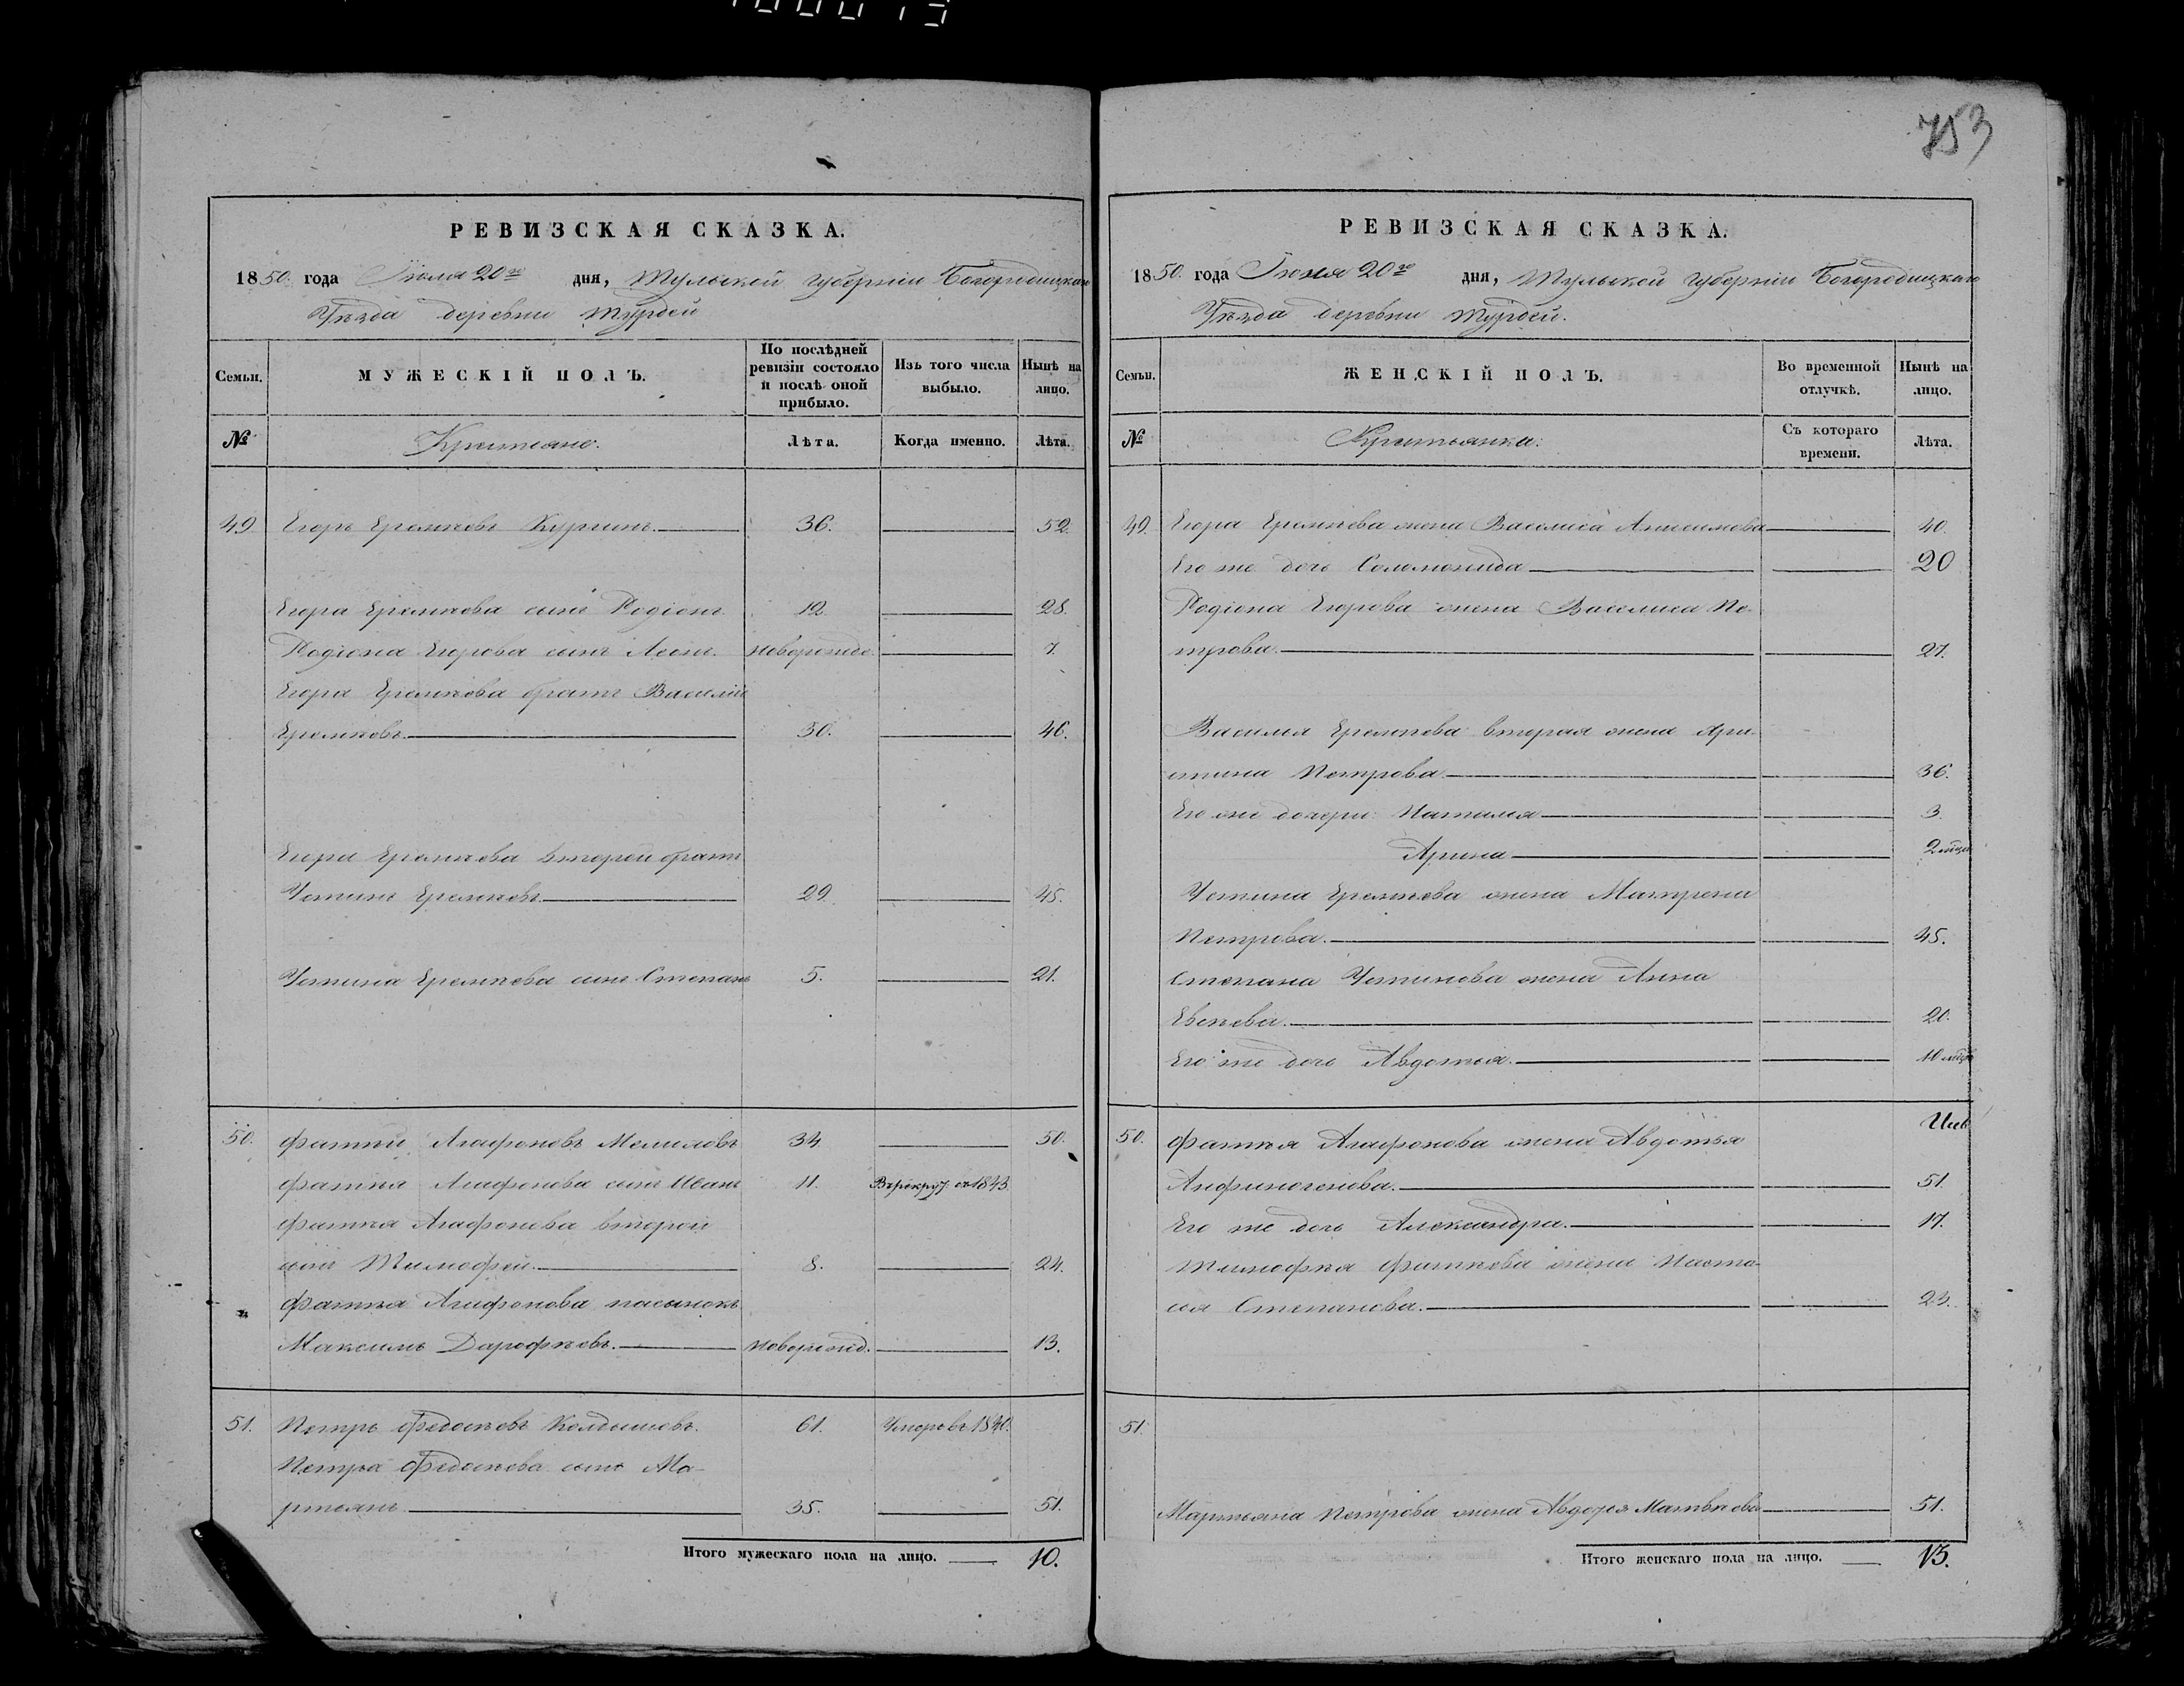 753
РЕВИЗСКАЯ СКАЗКА.
1850. года Іюля 20го дня, Тульской губерніи Богородицкаго
Уѣзда деревни Турдей
Семьи.
МУЖЕСКІЙ ПОЛЪ.
По послѣдней ревизіи состояло и послѣ оной прибыло.
Изъ того числа выбыло.
Нынѣ на лицо.
№ Крестьяне. Лѣта. Когда именно. Лѣта.
49. Егоръ Еремѣевъ 36. 52.
Егора Еремѣева сынъ Родіонъ 12. 28.
Родіона Егорова сынъ Леонъ. новорожде. 7.
Егора Еремѣева братъ Василій
Еремѣевъ. 30. 46.
Егора Еремѣева второй братъ
Устинъ Еремѣевъ 29. 45.
Устина Еремѣева сынъ Степанъ 5. 21.
50. Фатѣй Агафоновъ 34. 50.
Фатѣя Агафонова сынъ Иванъ 11. Въ рекрут. въ 1843
Фатѣя Агафонова второй
сынъ Тимофей. 8. 24.
Фатѣя Агафонова пасынокъ
Максимъ Дарофѣевъ. новорожд. 13.
51. Петръ Федосѣевъ Колдышевъ. 61. Умеръ въ 1840.
Петра Федосѣева сынъ Ма-
ртьянъ 35. 51.
Итого мужескаго пола на лицо. 10.
РЕВИЗСКАЯ СКАЗКА.
1850. года Іюля 20го дня, Тульской губерніи Богородицкаго
Уѣзда деревни Турдей.
Семьи.
ЖЕНСКІЙ ПОЛЪ.
Во временной отлучкѣ.
Нынѣ на лицо.
№ Крестьянки. Съ котораго времени. Лѣта.
49. Егора Еремѣева жена Василиса Анисимова 40.
Его же дочь Соломонида 20
Родіона Егорова жена Василиса Пе-
трова. 27.
Василья Еремѣева вторая жена Хри-
стина Петрова 36.
Его же дочери: Наталья 3.
Арина 2 мѣся
Устина Еремѣева жена Матрена
Петрова. 45.
Степана Устинова жена Анна
Евсѣева. 20.
Его же дочь Авдотья. 10 мѣся
50. Фатѣя Агафонова жена Авдотья
Анфиногенова. 51.
Его же дочь Александра. 17.
Тимофѣя Фатѣева жена Наста-
сья Степанова. 23.
51.
Мартьяна Петрова жена Авдотья Матвѣева 51.
Итого женскаго пола на лицо. 13.